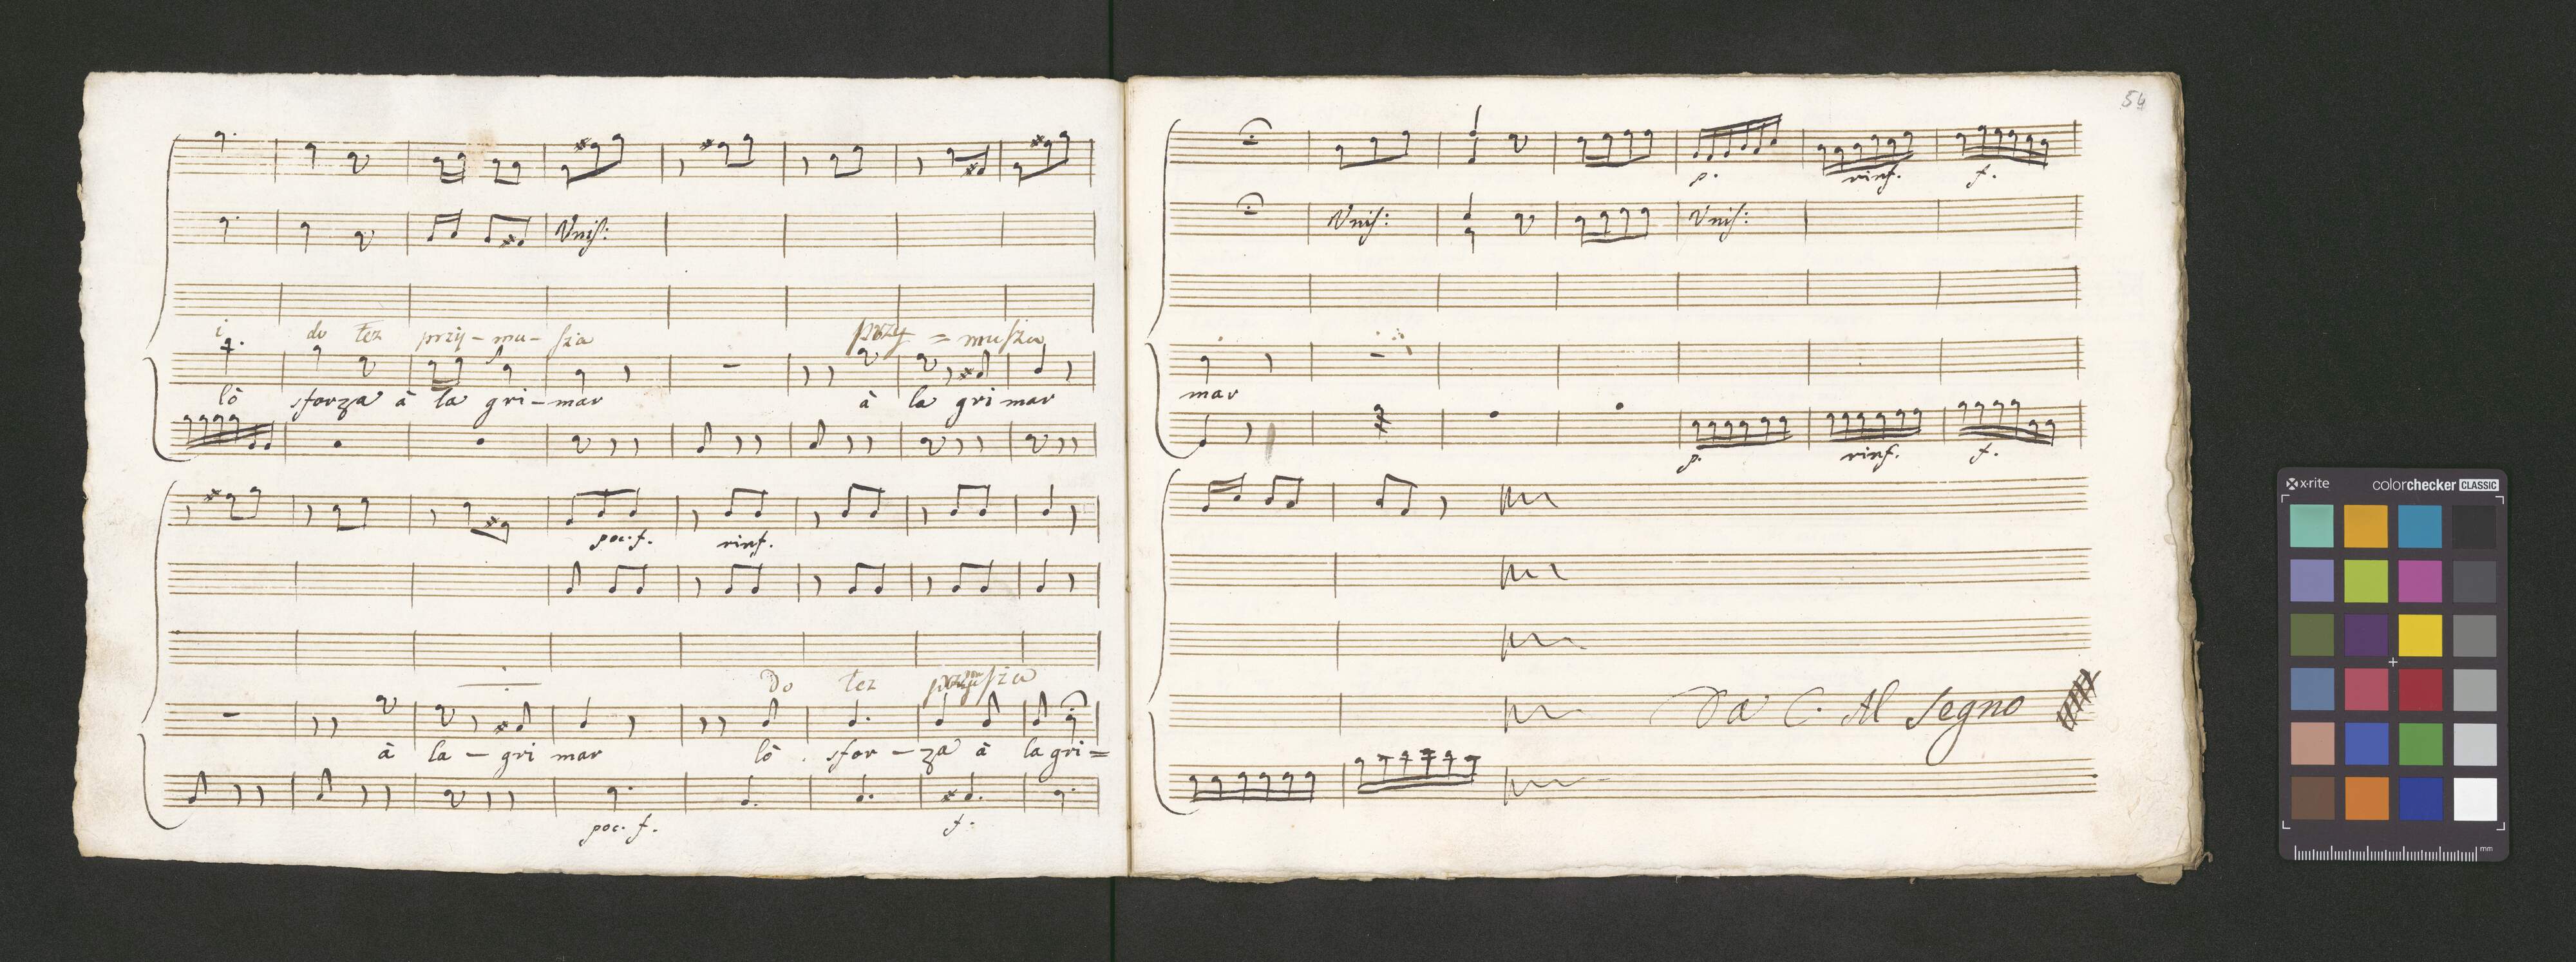 Unis:
i do łez przy-mu-sza przy=musza
lô sforza à la gri-mar à la gri mar
poc. f. rinf.
Do łez przymusza
à la-gri mar lô sfor-za à la gri=
poc. f. f.
54
p. rinf. f.
Unis: Unis:
mar
p. rinf. f.
Da C. Al Segno
x-rite colorchecker CLASSIC
mm